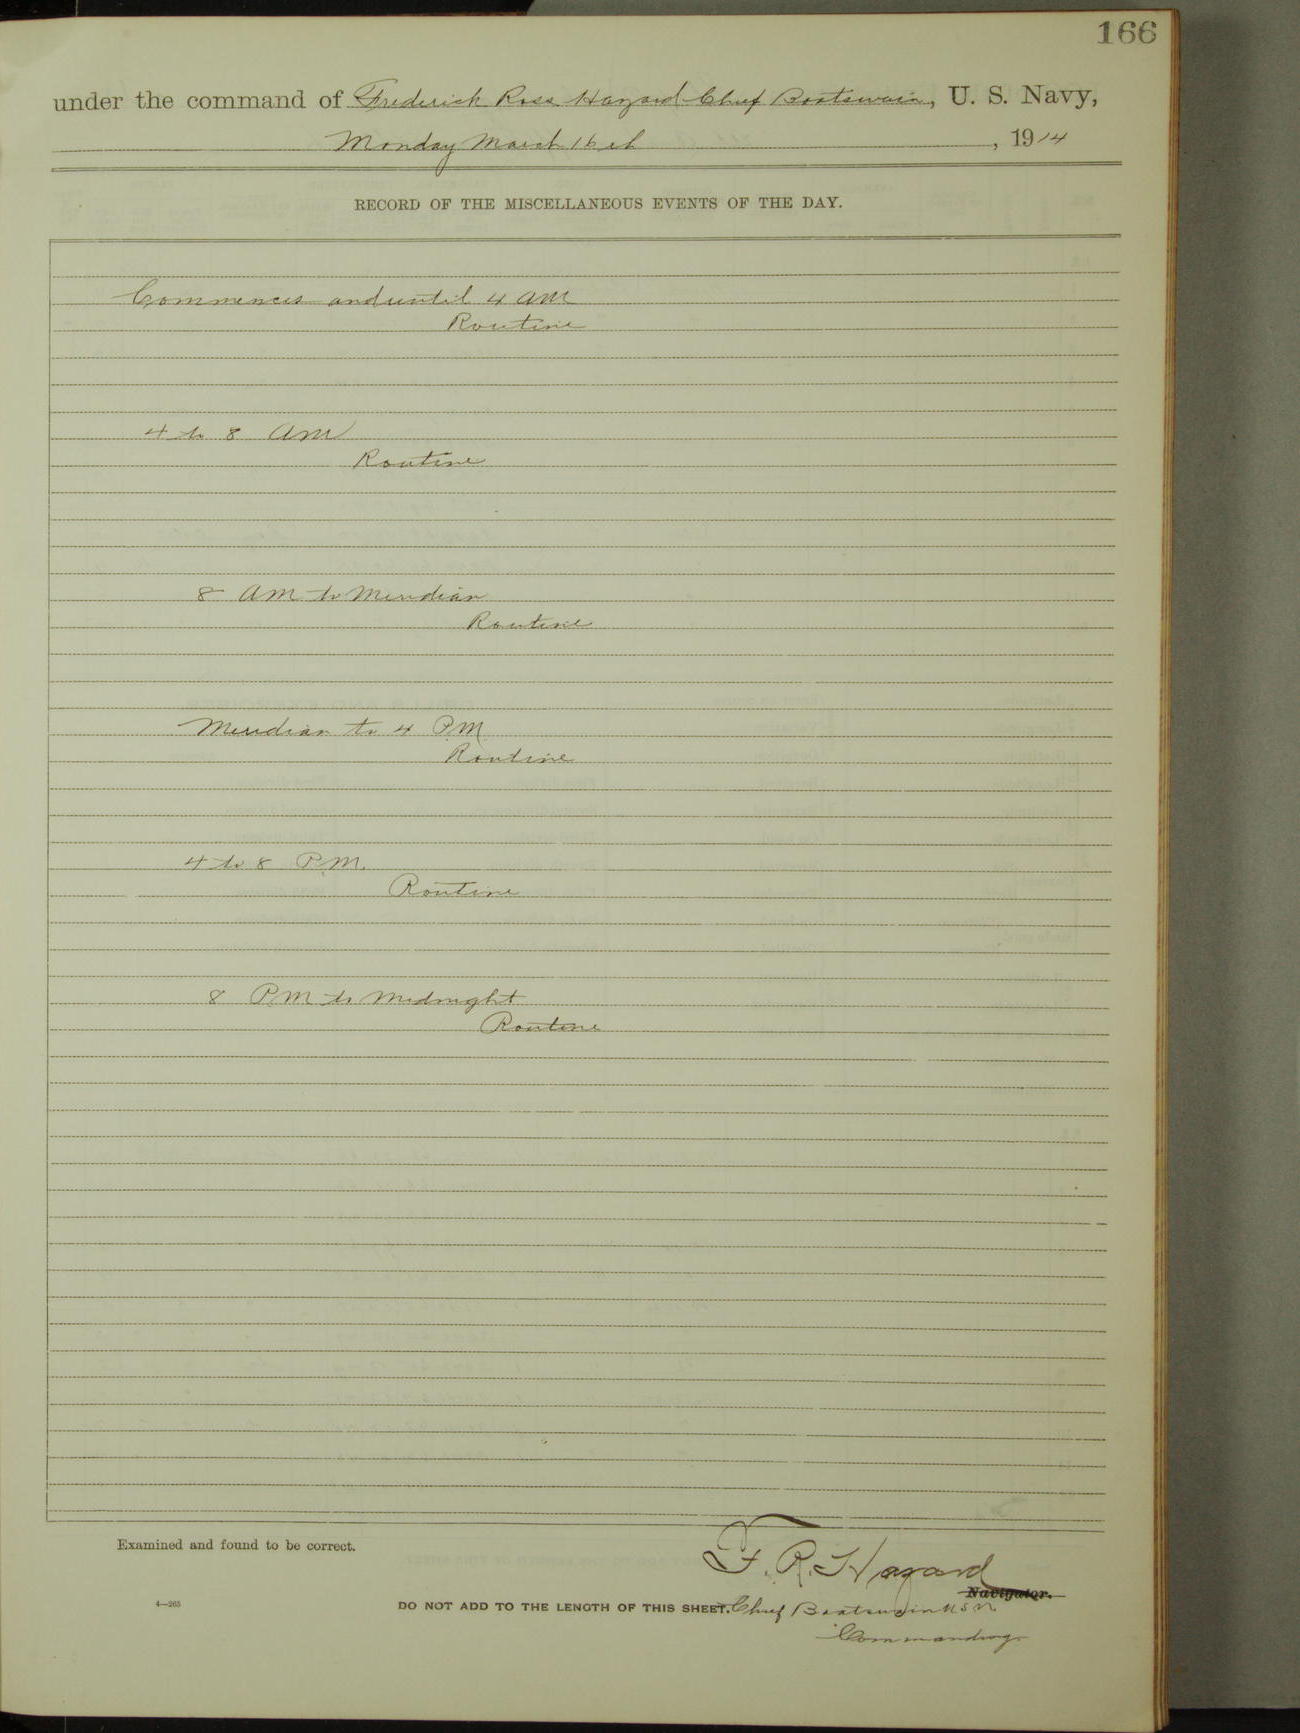 166
under the command of Frederick Ross Hazard Chief Boatswain, U. S. Navy,
Monday March 16th, 1914
RECORD OF THE MISCELLANEOUS EVENTS OF THE DAY.
Commences and until 4 am
Routine
4 to 8 am
Routine
8 am to Meridian
Routine
Meridian to 4 P.M.
Routine
4 to 8 P.M.
Routine
8 PM to Midnight
Routine
Examined and found to be correct.
F. R. Hazard
Navigator.
4—265
DO NOT ADD TO THE LENGTH OF THIS SHEET. Chief Boatswain U S N
Commanding